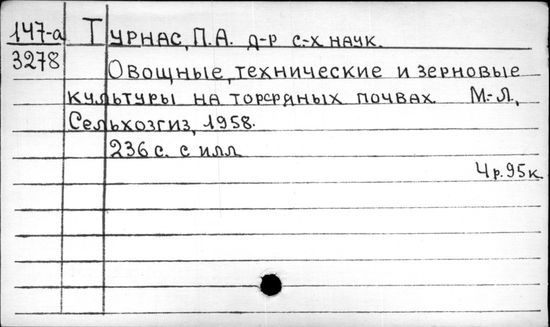 147-а
3278
Турнас, П.А. д-р с.-х наук.
Овощные, технические и зерновые
культуры на торфяных почвах. М.-Л.,
Сельхозгиз, 1958.
236 с. с илл
4 р. 95 к.